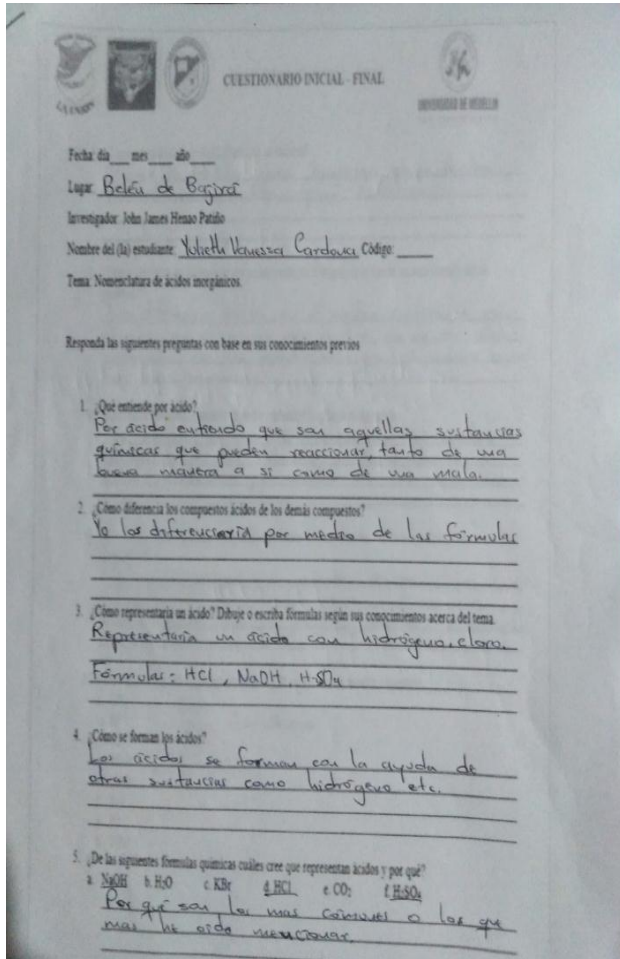 CUESTIONARIO INICIAL - FINAL
LA UNION
UNIVERSIDAD DE MEDELLIN
Fecha: día___ mes___ año___
Lugar: Belén de Bajirá
Investigador: John James Henao Patiño
Nombre del (la) estudiante: Yulieth Vanessa Cardona Código: ____
Tema: Nomenclatura de ácidos inorgánicos.
Responda las siguientes preguntas con base en sus conocimientos previos
1. ¿Qué entiende por ácido?
Por ácido entiendo que son aquellas sustancias
químicas que pueden reaccionar, tanto de una
buena manera a si como de una mala.
2. ¿Cómo diferencia los compuestos ácidos de los demás compuestos?
Yo los diferenciaria por medio de las fórmulas
3. ¿Cómo representaría un ácido? Dibuje o escriba fórmulas según sus conocimientos acerca del tema.
Representaria un ácido con hidrógeno, cloro.
Fórmulas: HCl, NaOH, H₂SO₄
4. ¿Cómo se forman los ácidos?
Los ácidos se forman con la ayuda de
otras sustancias como hidrógeno etc.
5. ¿De las siguientes formulas químicas cuáles cree que representan ácidos y por qué?
a. NaOH b. H₂O c. KBr d. HCL e. CO₂ f. H₂SO₄
Por qué son los mas comunes o los que
mas he oido mencionar.